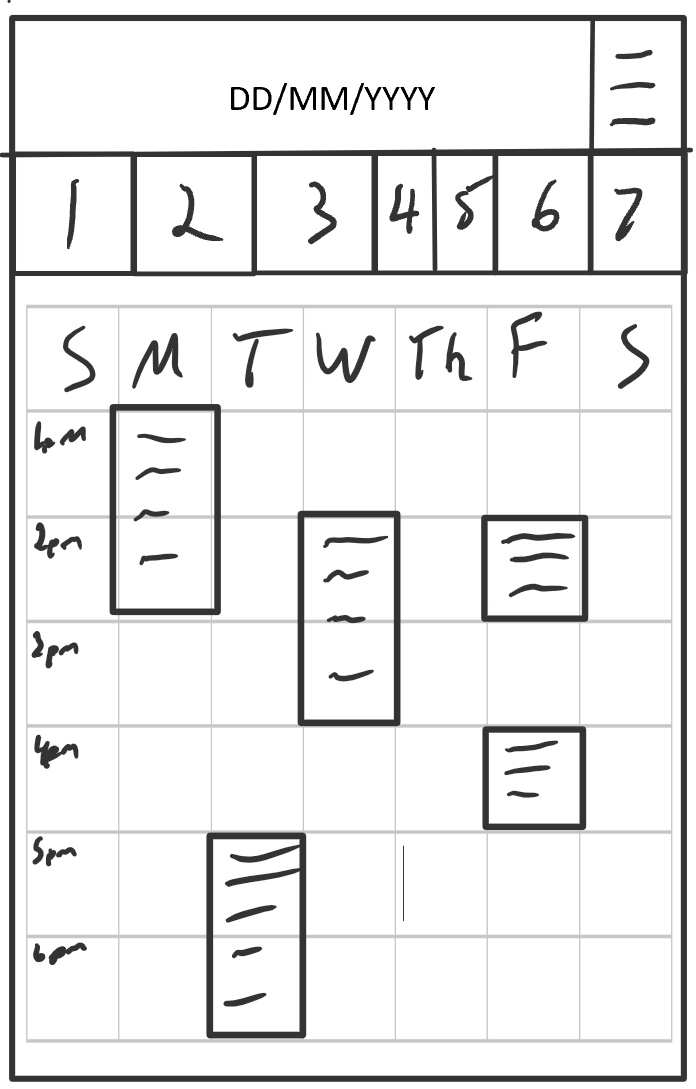 DD/MM/YYYY
1 2 3 4 5 6 7
S M T W Th F S
1pm
2pm
3pm
4pm
5pm
6pm